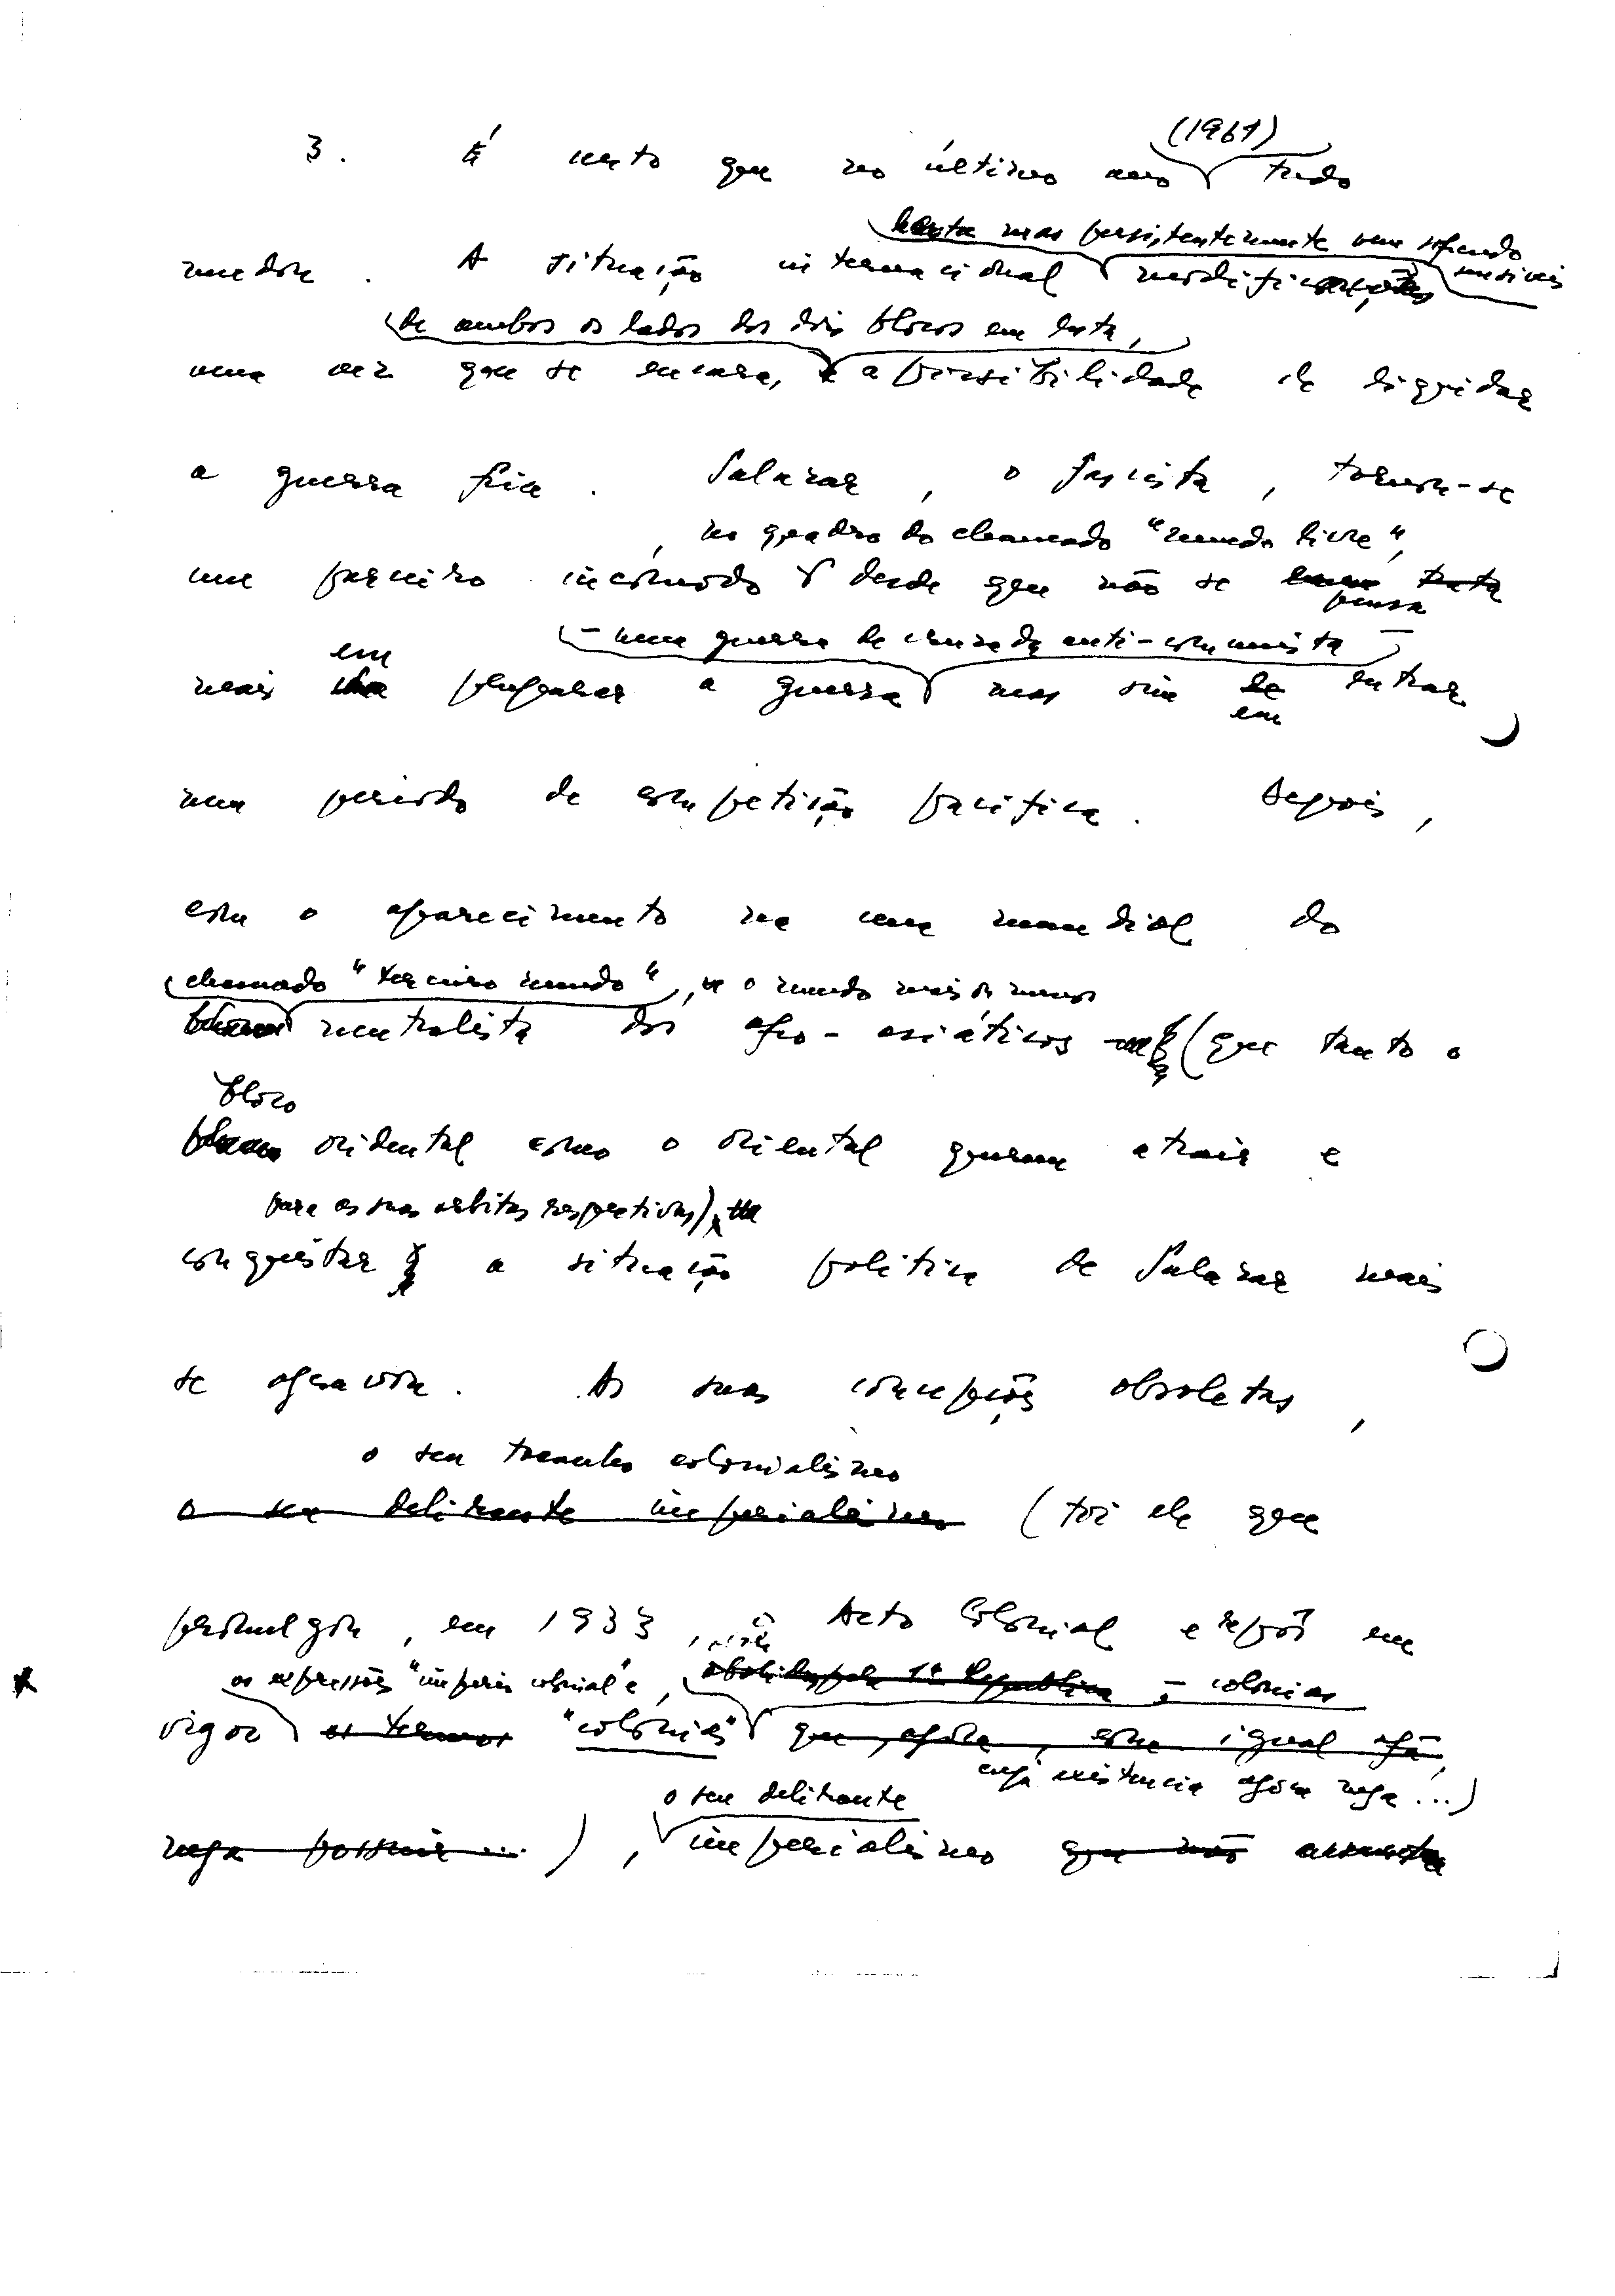 (1961)
3. É certo que no último ano tudo
lenta mas persistentemente vem sofrendo
mudou. A situação internacional modificações sensíveis
de ambos os lados dos dois blocos em luta,
uma vez que se encara, a possibilidade de liquidar
a guerra fria. Salazar, o fascista, tornou-se
, no quadro do chamado "mundo livre",
um parceiro incómodo desde que não se trata
pensa
- uma guerra de cruzada anti-comunista -
em
mais propagar a guerra mas sim de entrar
em
num período de competição pacífica. Depois,
com o aparecimento na cena mundial do
chamado "terceiro mundo", o mundo mais ou menos
neutralista dos afro-asiáticos (que tanto o
bloco
ocidental como o oriental querem atrair e
para as suas órbitas respectivas),
conquistar a situação política de Salazar mais
se agravou. As suas concepções obsoletas,
o seu tacanho colonialismo
o seu delirante imperialismo (foi ele que
promulgou, em 1933, o Acto Colonial e repôs em
as expressões "império colonial" e, abolidas pela 1ª República - colonias
vigor os termos "colonias" que, agora, com igual afã,
cuja existencia agora nega...)
o seu delirante
nega possuir...), imperialismo que não